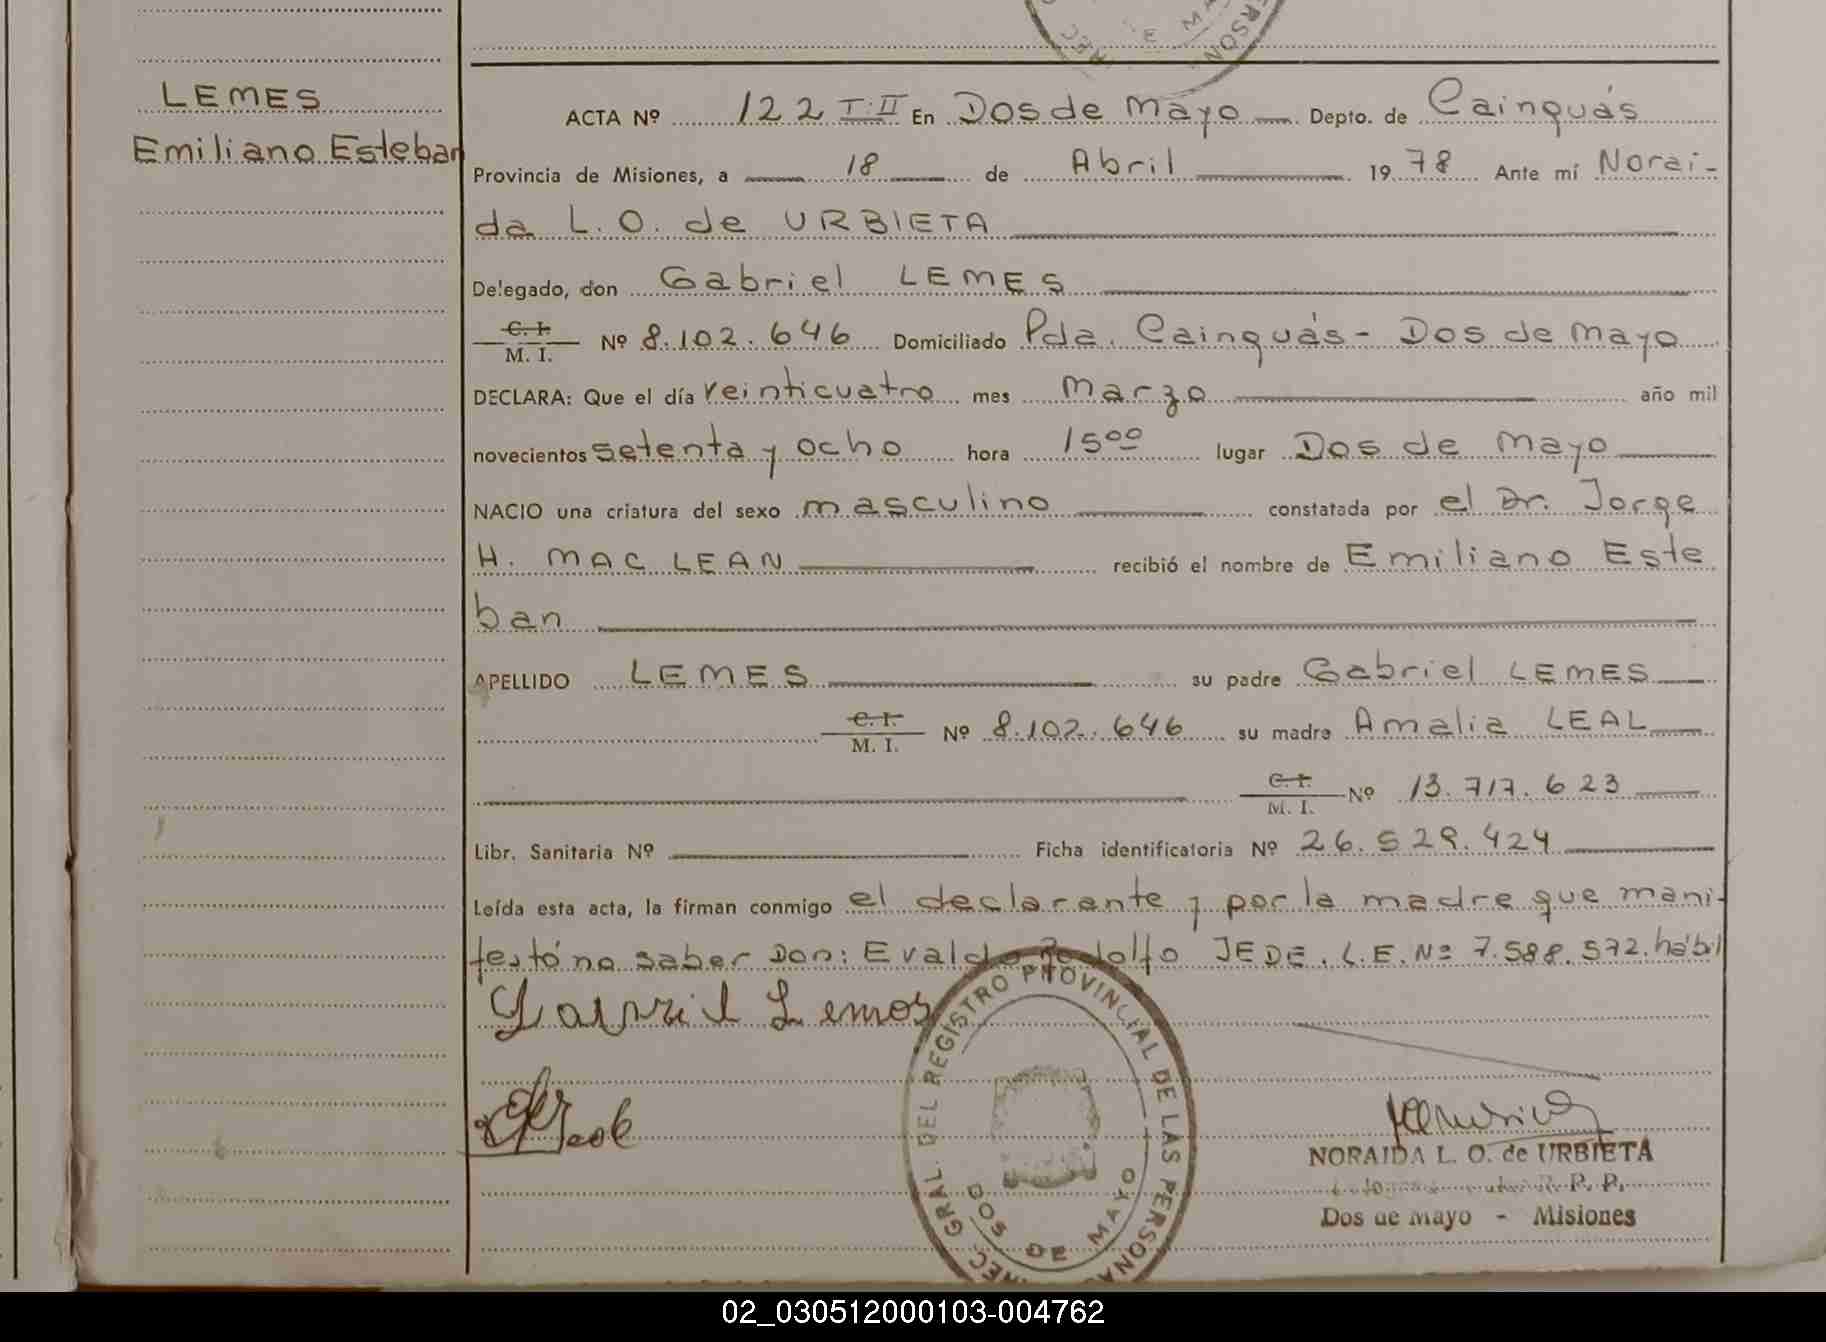 LEMES
Emiliano Esteban
ACTA Nº 122 T:II En Dos de Mayo Depto. de Cainguás
Provincia de Misiones, a 18 de Abril 1978 Ante mí Norai-
da L. O. de URBIETA
Delegado, don Gabriel LEMES
C. I.
M. I. Nº 8.102.646 Domiciliado Pda. Cainguás - Dos de Mayo
DECLARA: Que el día veinticuatro mes Marzo año mil
novecientos setenta y ocho hora 15°° lugar Dos de Mayo
NACIO una criatura del sexo masculino constatada por el Dr. Jorge
H. MAC LEAN recibió el nombre de Emiliano Este
ban
APELLIDO LEMES su padre Gabriel LEMES
C. I.
M. I. Nº 8.102.646 su madre Amalia LEAL
C. I.
M. I. Nº 13.717.623
Libr. Sanitaria Nº Ficha identificatoria Nº 26.529.424
Leída esta acta, la firman conmigo el declarante y por la madre que mani-
festó no saber Don: Evaldo Rodolfo JEDE. L.E. Nº 7.588.572. hábil
Gabriel Lemes
GRAL. DEL REGISTRO PROVINCIAL DE LAS PERSONAS
DOS DE MAYO
NORAIDA L. O. de URBIETA
R. P. P.
Dos de Mayo - Misiones
02_030512000103-004762